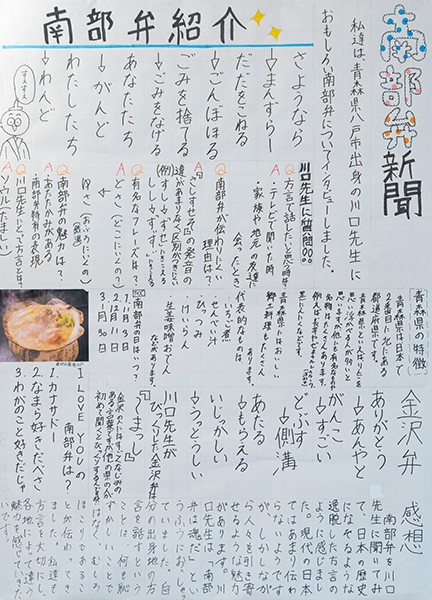 南部弁新聞
私達は、青森県八戸市出身の川口先生に
おもしろい南部弁についてインタビューしました。
南部弁紹介
さようなら
→まんずらー
だだをこねる
→ごんぼほる
ごみを捨てる
→ごみをなげる
あなたたち
→がんど
わたしたち
→わんど
川口先生に質問!!
Q 方言で話したいと思う時は?
A ・テレビで聞いた時
・家族や地元の友達に
会ったとき
Q 南部弁が伝わりにくい
理由は?
A 『さしすせそ』の発音の
違いがあまりなく区別ができない
Q 有名なフレーズは?
A どさ(どこにいくの)
↓
ゆさ(おふろにいくの)
Q 南部弁の魅力は?
A ・あたたかみがある
・南部弁特有の表現
Q 川口先生にとって方言とは?
A ソウル(たましい)
青森県の特徴
青森県は日本で
北にある
都道府県です。
青森県といえばりんごを
郷土料理もたくさん
代表的なものは
・いちご煮
・せんべい汁
・ひっつみ
・けいらん
・生姜味噌おでん
などがあります。
南部弁の日はいつ?
1.11月3日
2.12月1日
3.1月30日
金沢弁
ありがとう
→あんやと
がんこ
→すごい
どぶす
→側溝
あたる
→もらえる
いじっかしい
→うっとうしい
川口先生が
びっくりした金沢弁は
『しまっし』
I LOVE YOUの
南部弁は?
1.カナサドー
2.なまら好きだべさ
3.わがのこと好きだじゃ
感想
南部弁を川口
先生に聞いてみ
て、日本の歴史
になぞるような
逸脱した方言の
ように感じまし
た。現代の日本
ではあまり伝わ
らないようです
が、しかしなが
ら人々を引き寄
せるような魅力
があります。川
口先生は「南部
弁は魂だ」とい
うふうにおっしゃっ
ていました。自
分の出身地の方
言を話すという
ことは、何も恥
ずかしいことで
はなく、むしろ
ほこりであるこ
とが伝わってき
ました。私達も
方言を大切にし
各地によって違う
魅力を感じてみたい
です。